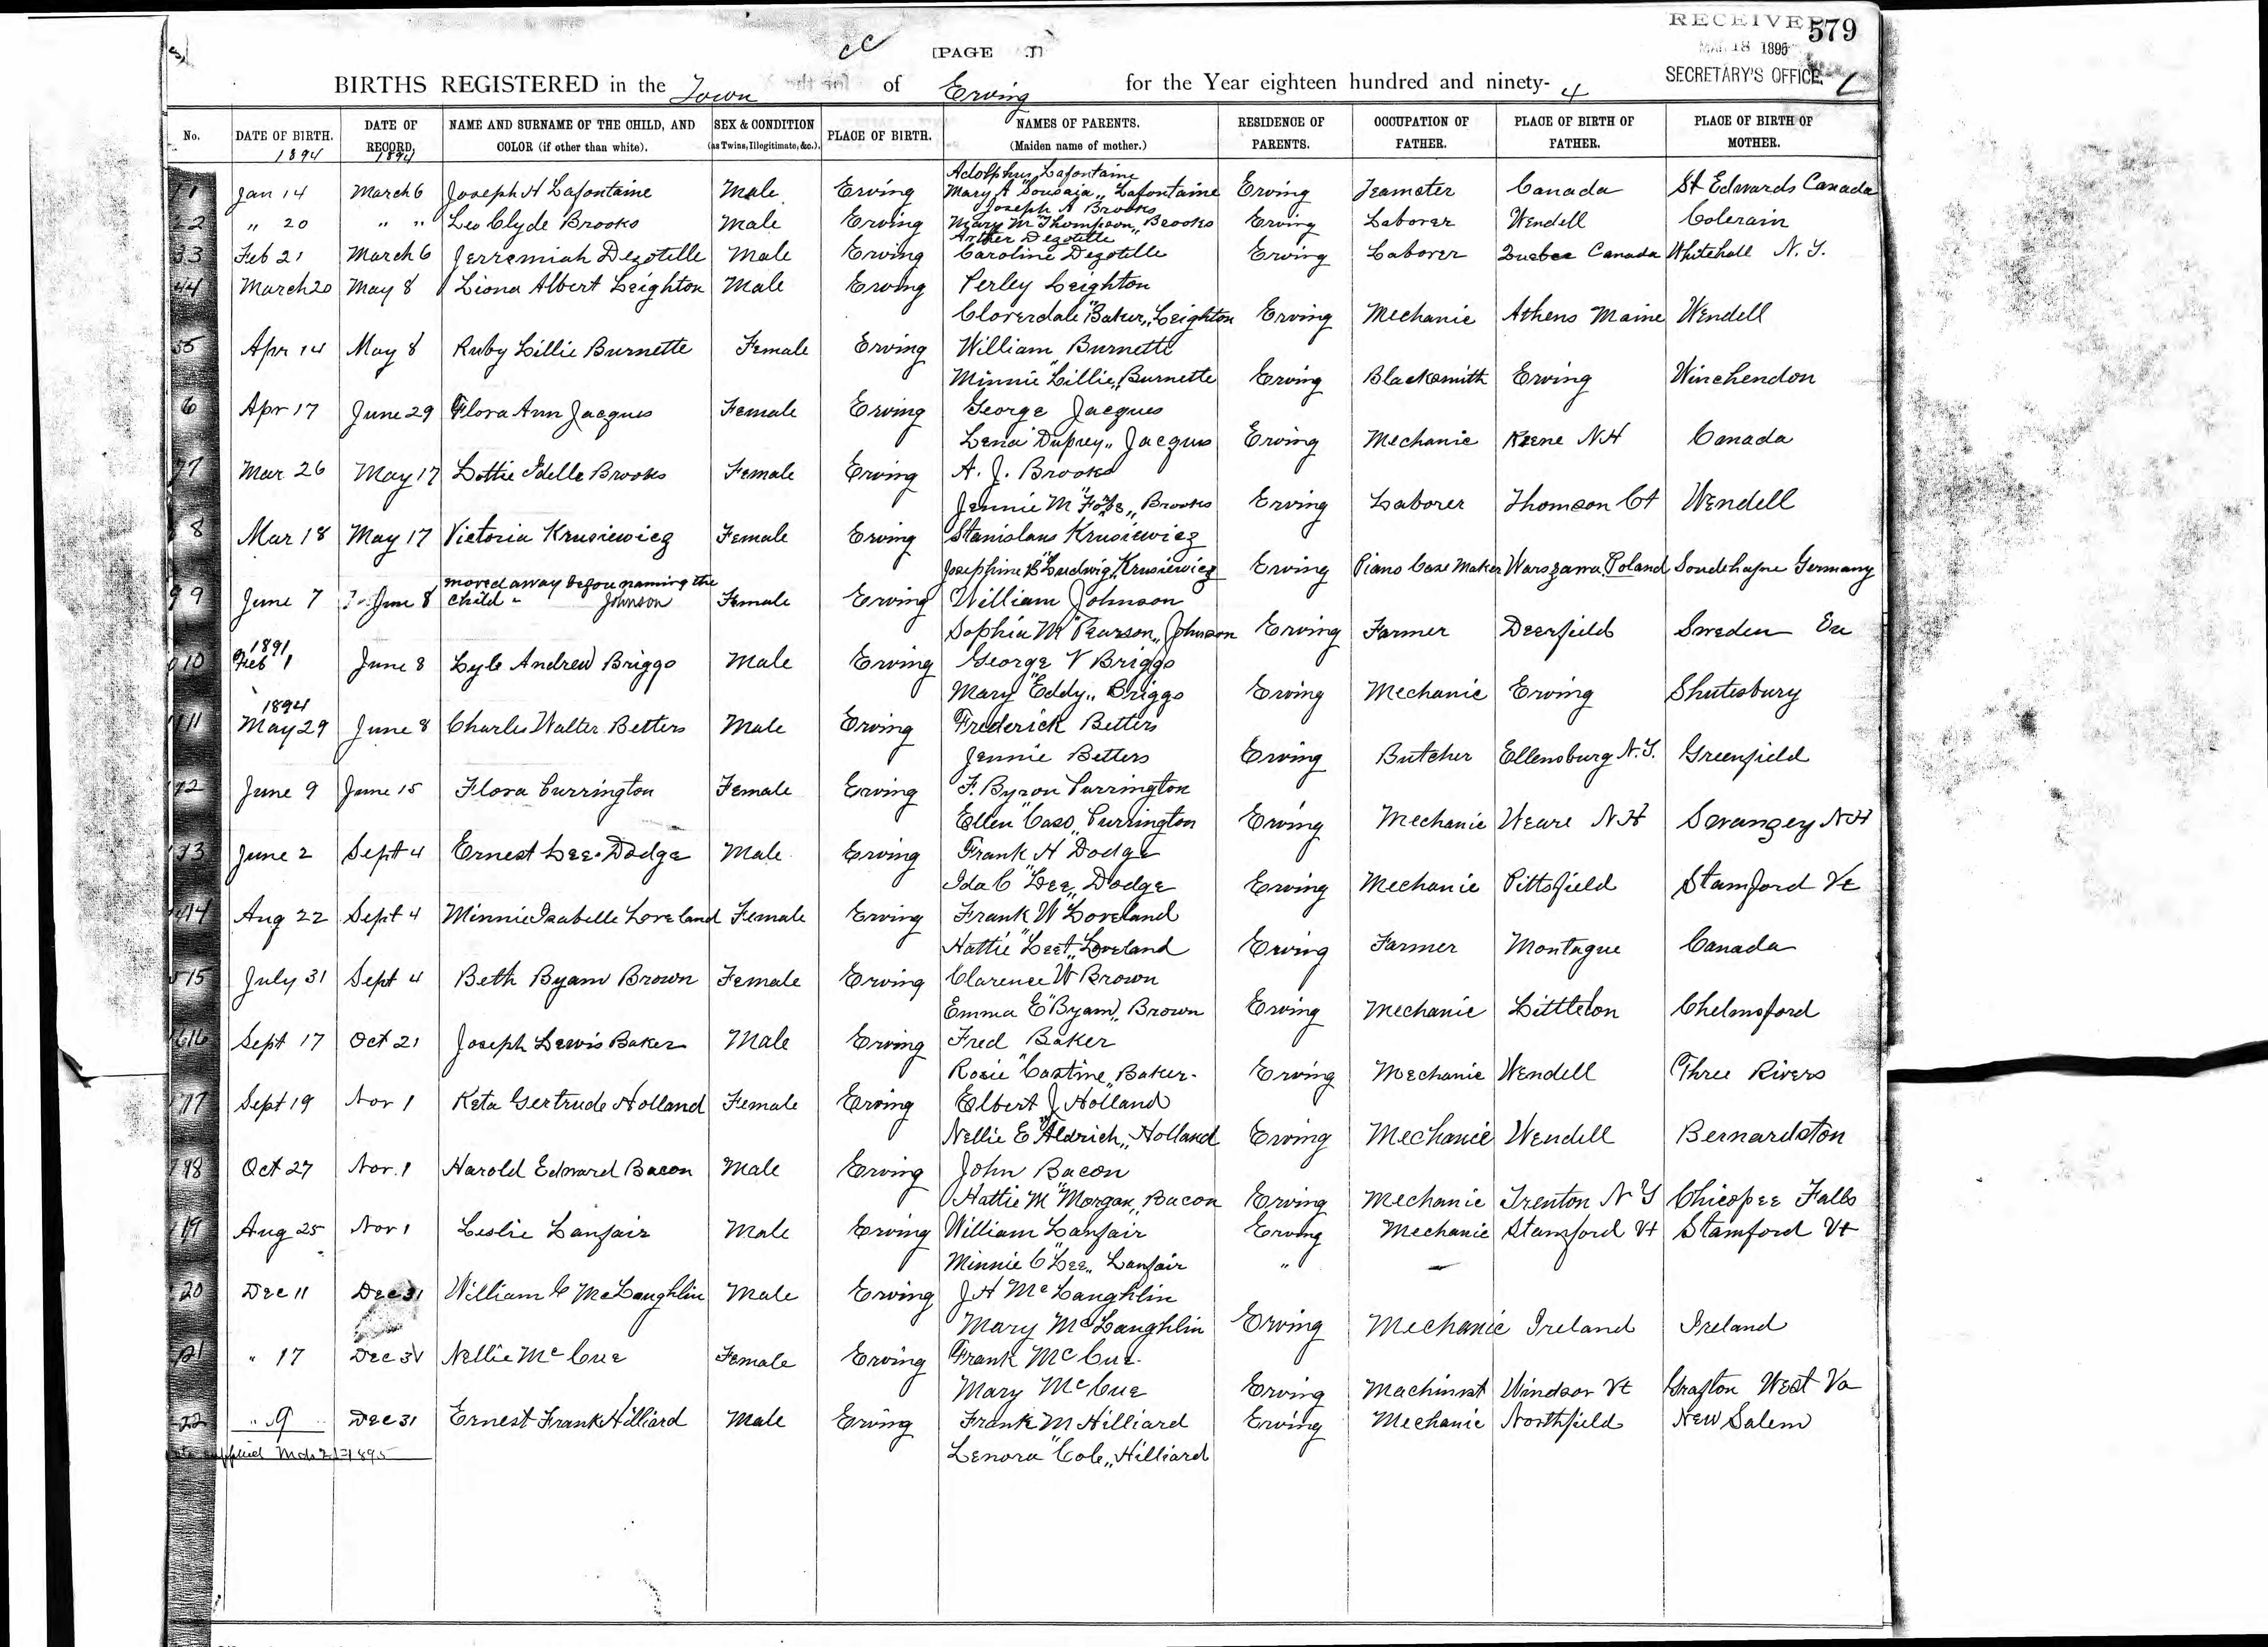 RECEIVED 579
MAR 18 1895
SECRETARY'S OFFICE
[PAGE 1]
BIRTHS REGISTERED in the Town of Erving for the Year eighteen hundred and ninety-4
No. DATE OF BIRTH. DATE OF RECORD. NAME AND SURNAME OF THE CHILD, AND COLOR (if other than white). SEX & CONDITION (as Twins, Illegitimate, &c.). PLACE OF BIRTH. NAMES OF PARENTS. (Maiden name of mother.) RESIDENCE OF PARENTS. OCCUPATION OF FATHER. PLACE OF BIRTH OF FATHER. PLACE OF BIRTH OF MOTHER.
1894 1894
Adolphus Lafontaine
1 Jan 14 March 6 Joseph H Lafontaine Male Erving Mary A "Sousaia" Lafontaine Erving Teamster Canada St Edwards Canada
Joseph A Brooks
2 " 20 " " Leo Clyde Brooks Male Erving Mary M "Thompson" Brooks Erving Laborer Wendell Colerain
Arther Dezotelle
3 Feb 21 March 6 Jerremiah Dezotelle Male Erving Caroline Dezotelle Erving Laborer Quebec Canada Whitehall N.Y.
4 March 20 May 8 Liona Albert Leighton Male Erving Perley Leighton
Cloverdale "Baker" Leighton Erving Mechanic Athens Maine Wendell
5 Apr 14 May 8 Ruby Lillie Burnette Female Erving William Burnette
Minnie "Lillie" Burnette Erving Blacksmith Erving Winchendon
6 Apr 17 June 29 Flora Ann Jacques Female Erving George Jacques
Lena "Duprey" Jacques Erving Mechanic Keene NH Canada
7 Mar. 26 May 17 Lottie Idelle Brooks Female Erving A. J. Brooks
Jennie M Brooks Erving Laborer Thomson Ct Wendell
8 Mar 18 May 17 Victoria Krusiewicz Female Erving Stanislaus Krusiewicz
Josephine B "Ludwig" Krusiewicz Erving Piano Case Maker Warszawa Poland Germany
moved away before naming the
9 June 7 June 8 child - Johnson Female Erving William Johnson
Sophia M "Pearson" Johnson Erving Farmer Deerfield Sweden
1891
10 Feb 1 June 8 Lyle Andrew Briggs Male Erving George V Briggs
Mary "Eddy" Briggs Erving Mechanic Erving Shutesbury
1894
11 May 29 June 8 Charles Walter Betters Male Erving Frederick Betters
Jennie Betters Erving Butcher Ellensburg N.Y. Greenfield
12 June 9 June 15 Flora Purrington Female Erving F. Byron Purrington
Ellen "Cass" Purrington Erving Mechanic Weare NH Swanzey NH
13 June 2 Sept 4 Ernest Lee Dodge Male Erving Frank H Dodge
Ida C "Lee" Dodge Erving Mechanic Pittsfield Stamford Vt
14 Aug 22 Sept 4 Minnie Isabelle Loveland Female Erving Frank W Loveland
Hattie "Leet" Loveland Erving Farmer Montague Canada
15 July 31 Sept 4 Beth Byam Brown Female Erving Clarence W Brown
Emma E "Byam" Brown Erving Mechanic Littleton Chelmsford
16 Sept 17 Oct 21 Joseph Lewis Baker Male Erving Fred Baker
Rosie "Castine" Baker Erving Mechanic Wendell Three Rivers
17 Sept 19 Nov 1 Keta Gertrude Holland Female Erving Elbert J Holland
Nellie E "Aldrich" Holland Erving Mechanic Wendell Bernardston
18 Oct 27 Nov. 1 Harold Edward Bacon Male Erving John Bacon
Hattie M "Morgan" Bacon Erving Mechanic Trenton N Y Chicopee Falls
19 Aug 25 Nov 1 Leslie Lanfair Male Erving William Lanfair Erving Mechanic Stamford Vt Stamford Vt
Minnie C "Lee" Lanfair "
20 Dec 11 Dec 31 William C McLaughlin Male Erving J H McLaughlin
Mary McLaughlin Erving Mechanic Ireland Ireland
21 " 17 Dec 31 Nellie McCue Female Erving Frank McCue
Mary McCue Erving Machinist Windsor Vt Grafton West Va
22 " 9 Dec 31 Ernest Frank Hilliard Male Erving Frank M Hilliard Erving Mechanic Northfield New Salem
supplied Mch 21-1895 Lenora "Cole" Hilliard